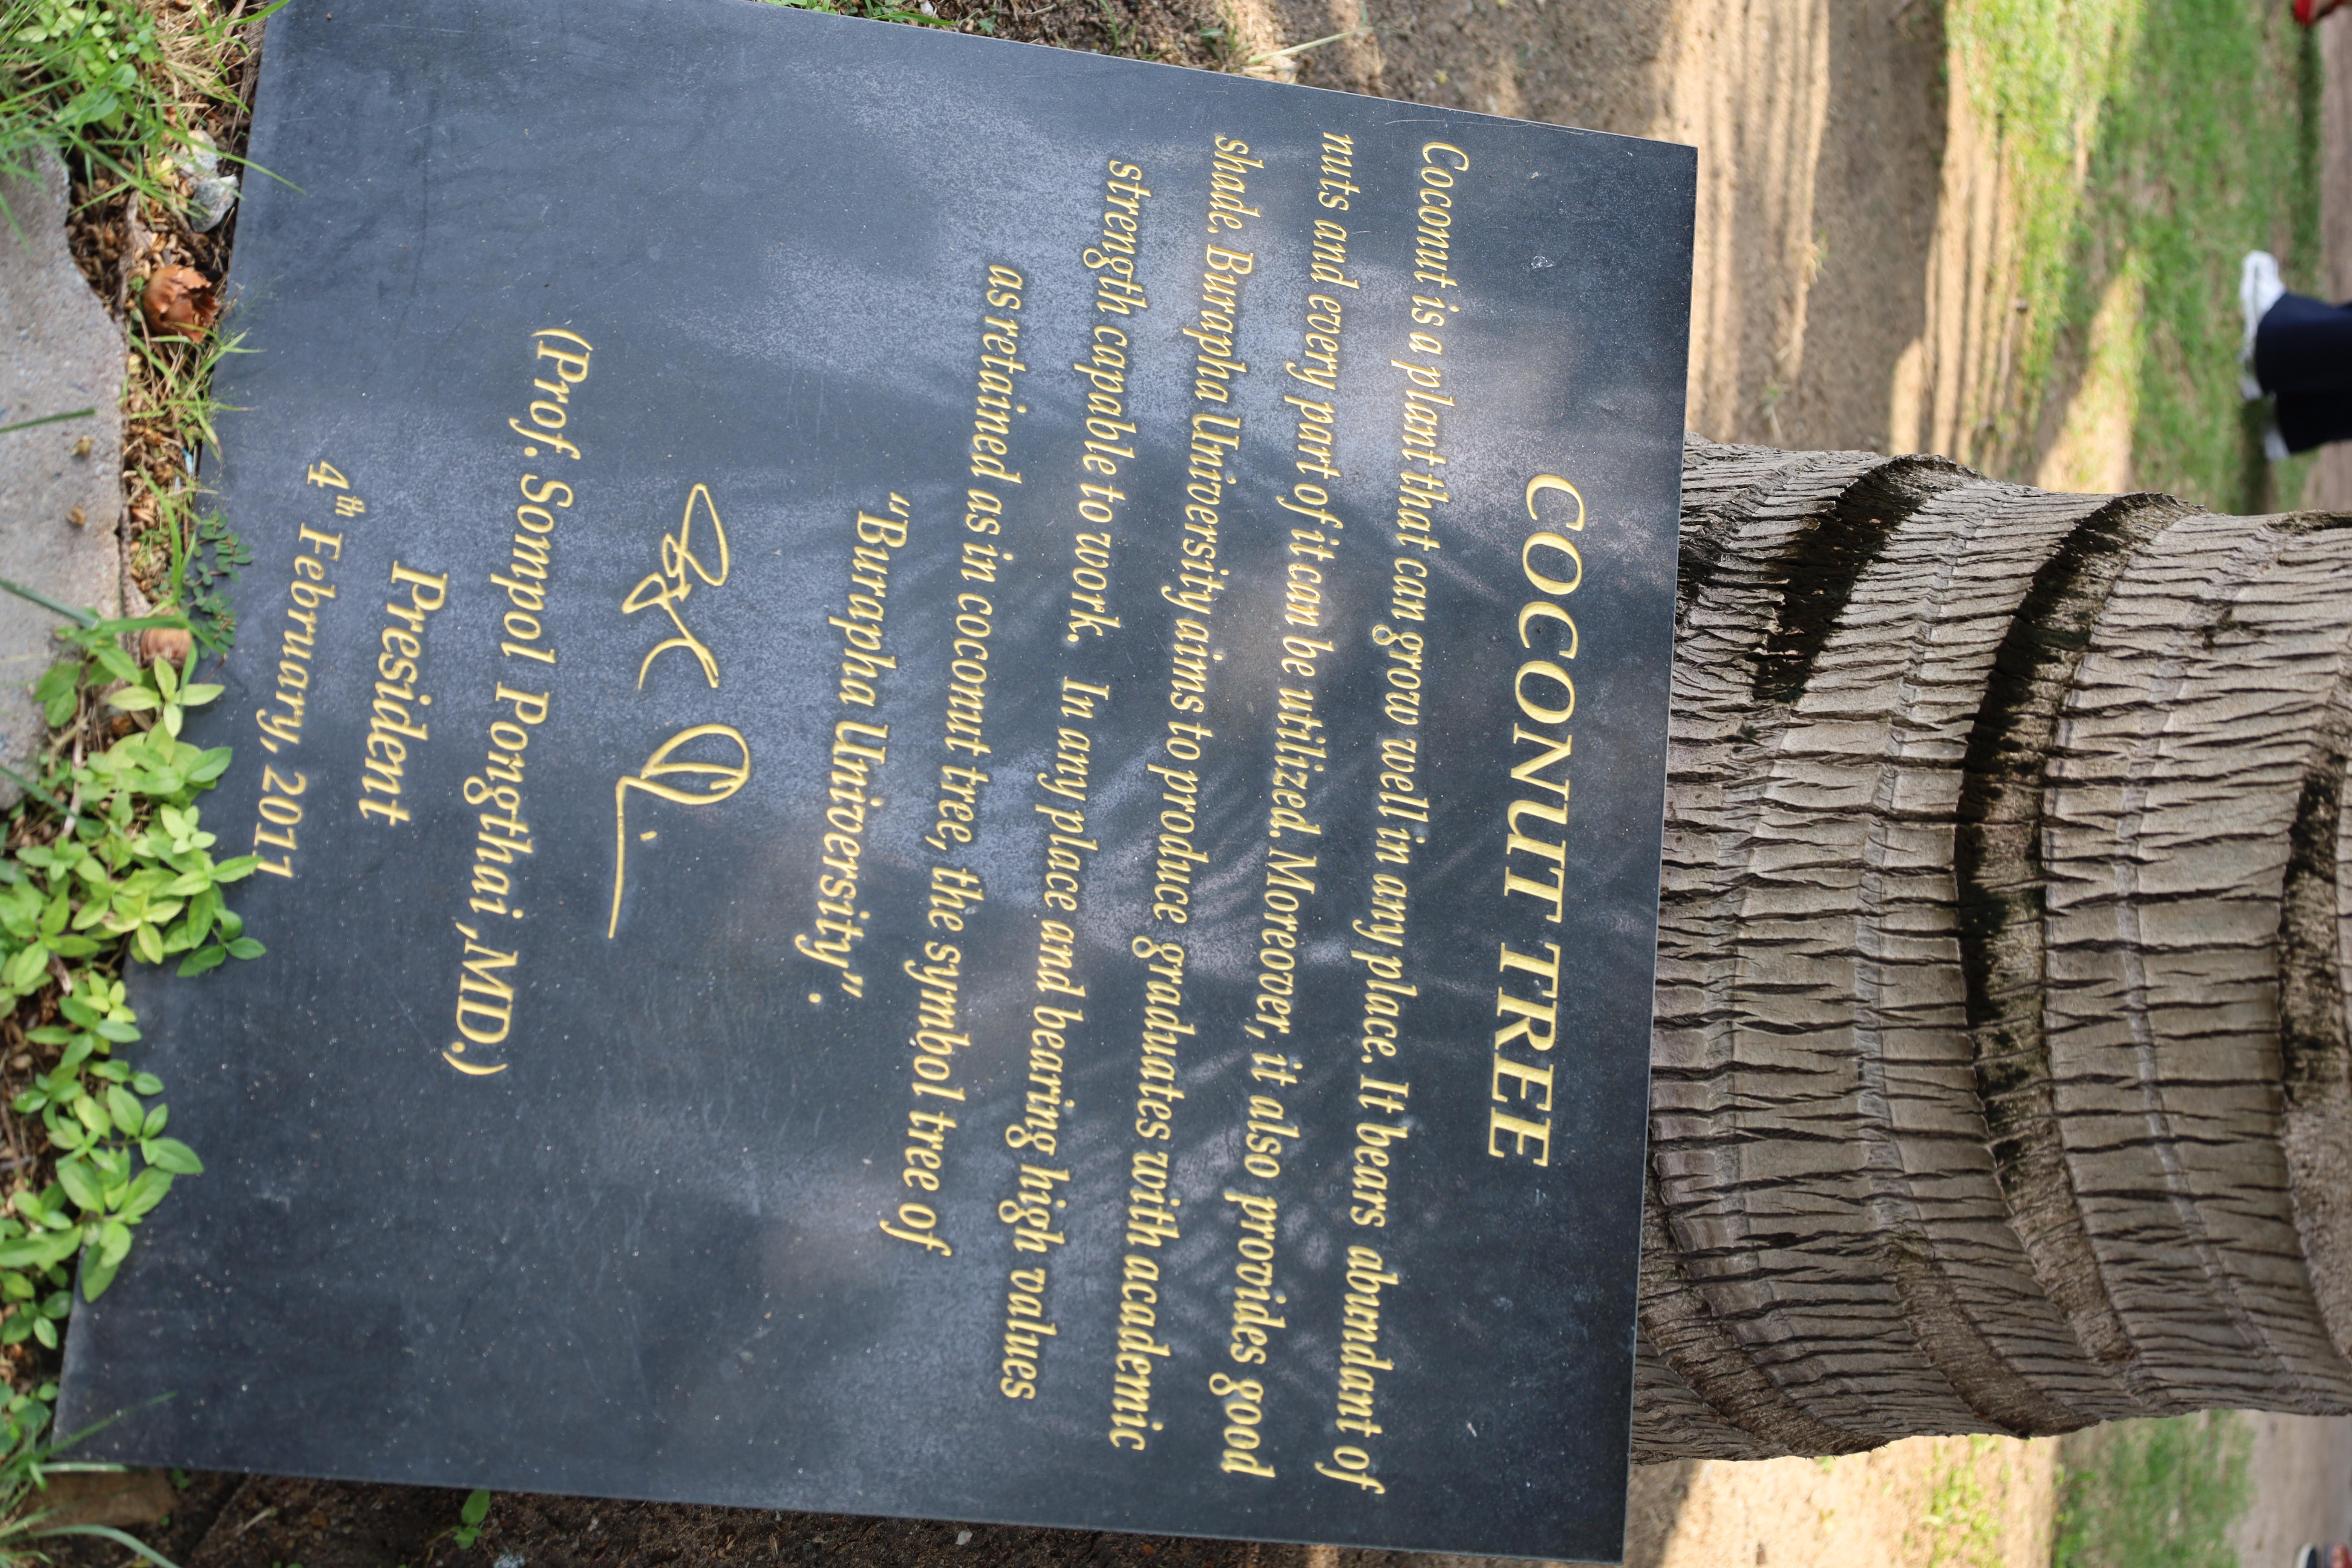 COCONUT TREE
Coconut is a plant that can grow well in any place. It bears abundant of
nuts and every part of it can be utilized. Moreover, it also provides good
shade. Burapha University aims to produce graduates with academic
strength capable to work. In any place and bearing high values
as retained as in coconut tree, the symbol tree of
"Burapha University".
(Prof. Sompol Pongthai ,MD.)
President
4th February, 2011